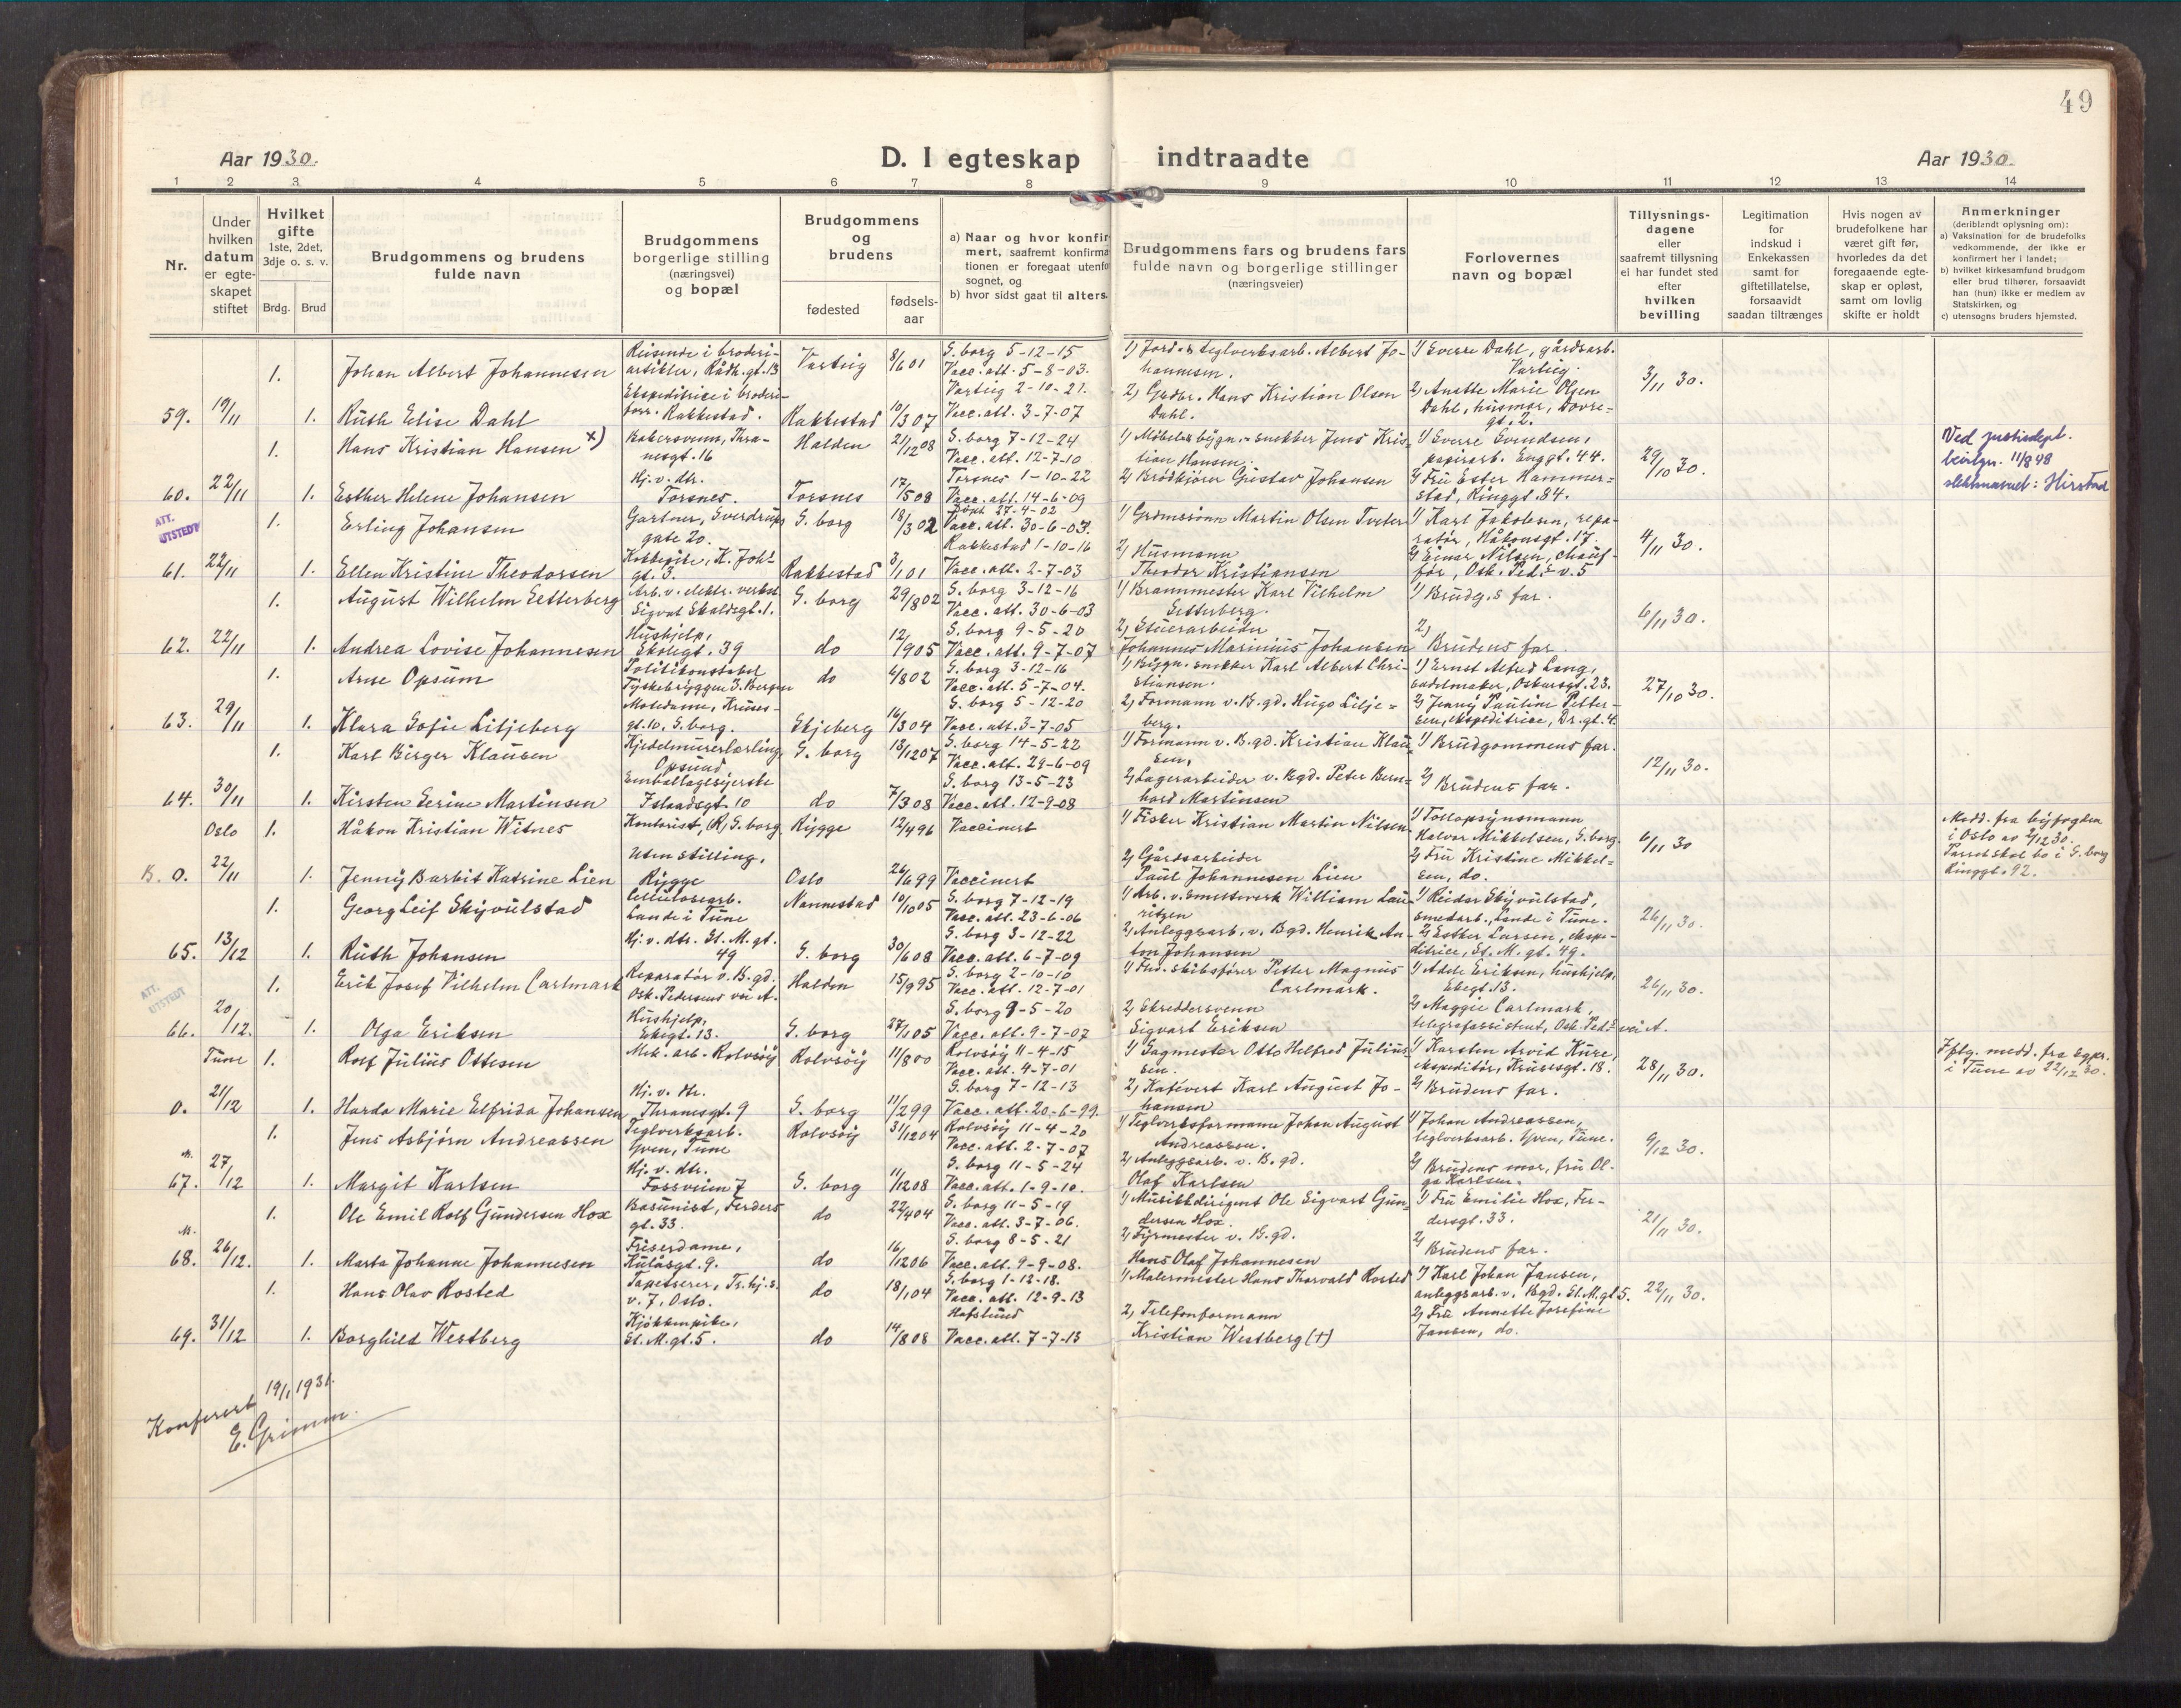 49
Aar 1930.
D. I egteskap indtraadte
Aar 1930.
1 2 3. 4 5 6 7 8 9 10 11 12 13 14
Nr.
Under hvilken datum er egte-skapet stiftet
Hvilket gifte 1ste, 2det, 3dje o. s. v.
Brdg. Brud
Brudgommens og brudens fulde navn
Brudgommens borgerlige stilling (næringsvei) og bopæl
Brudgommens og brudens
fødested
fødsels-aar
a) Naar og hvor konfir
mert, saafremt konfirma
tionen er foregaat utenfo
sognet, og
b) hvor sidst gaat til alters.
Brudgommens fars og brudens fars fulde navn og borgerlige stillinger (næringsveier)
Forlovernes navn og bopæl
Tillysnings-dagene eller saafremt tillysning ei har fundet sted efter hvilken bevilling
Legitimation for indskud i Enkekassen samt for giftetillatelse, forsaavidt saadan tiltrænges
Hvis nogen av brudefolkene har været gift før, hvorledes da det foregaaende egte-skap er opløst, samt om lovlig skifte er holdt
Anmerkninger
(deriblandt oplysning om):
a) Vaksination for de brudefolks vedkommende, der ikke er konfirmert her i landet;
b) hvilket kirkesamfund brudgom eller brud tilhører, forsaavidt han (hun) ikke er medlem av Statskirken, og
c) utensogns bruders hjemsted.
1. Johan Albert Johannesen Reisende i broderi-artikler, Rådh.gt.13 Varteig 8/6 01 S.borg 5-12-15 Vacc.att. 5-8-03. 1) Jord- & teglverksarb. Albert Johannesen. 1) Sverre Dahl, gårdsarb. Varteig. 3/11 30.
59. 19/11 1. Ruth Elise Dahl Ekspeditrice i broderi-forr. Rakkestad. Rakkestad 10/3 07 Varteig 2-10-21. Vacc.att. 3-7-07 2) Gårdbr. Hans Kristian Olsen Dahl. 2) Anette Marie Olsen Dahl, husmor, Dovre-gt. 2.
1. Hans Kristian Hansen x) Bakersvenn, Thra-nesgt. 16 Halden 21/12 08 S.borg 7-12-24 Vacc.att. 12-7-10 1) Møbel- & bygn.-snekker Jens Kristian Hansen. 1) Sverre Svendsen, papirarb. Enggt. 44. 29/10 30. Ved justisdept. bevilgn. 11/8 48 slektsnavnet: Hirstad
60. 22/11 1. Esther Helene Johansen Hj.v. dtr. Torsnes. Torsnes 17/5 08 Torsnes 1-10-22 Vacc.att. 14-6-09 2) Brødkjører Gustav Johansen 2) Fru Ester Hammer-stad, Ringgt. 84.
ATT. UTSTEDT
1. Erling Johansen Gartner, Sverdrups gate 20. S.borg 18/3 02 Døpt 27-4-02 Vacc.att. 30-6-03. 1) Grdmssønn Martin Olsen Tveter 1) Karl Jakobsen, repa-ratør, Håkonsgt. 17. 4/11 30.
61. 22/11 1. Ellen Kristine Theodorsen Kokkepike, K. Johs gt. 3. Rakkestad 3/1 01 Rakkestad 1-10-16 Vacc.att. 2-7-03 2) Husmann Theodor Kristiansen 2) Einar Nilsen, chauf-før, Osk. Peds v. 5
1. August Wilhelm Setterberg Arb. v. elektr. verkst. Sigvat Skaldsgt. 1. S.borg 29/8 02 S.borg 3-12-16 Vacc.att. 30-6-03 1) Brannmester Karl Vilhelm Setterberg. 1) Brudg.s far. 6/11 30.
62. 22/11 1. Andrea Lovise Johannesen Hushjelp, Skolegt. 39 do 12/9 05 S.borg 9-5-20 Vacc.att. 9-7-07 2) Stuerarbeider Johannes Marinius Johansen 2) Brudens far.
1. Arne Opsum Politikonstabel Tyskebryggen 3. Bergen do 6/8 02 S.borg 3-12-16 Vacc.att. 5-7-04. 1) Bygn. snekker Karl Albert Chri-stiansen. 1) Ernst Alfred Lang, sadelmaker, Oskarsgt. 23. 27/10 30.
63. 29/11 1. Klara Sofie Liljeberg Motedame, Kruses-gt. 10, S.borg. Skjeberg 16/3 04 S.borg 5-12-20 Vacc.att. 3-7-05 2) Formann v. B.gd. Hugo Lilje-berg. 2) Jenny Pauline Petter-sen, ekspeditrice, Dr.gt. 4.
1. Karl Birger Klausen Kjedelmurerlærling, Opsund S.borg 13/12 07 S.borg 14-5-22 Vacc.att. 29-6-09 1) Formann v. B.gd. Kristian Klausen, 1) Brudgommens far. 12/11 30.
64. 30/11 1. Kirsten Serine Martinsen Emballagesyerske Islandsgt. 10 do 7/3 08 S.borg 13-5-23 Vacc.att. 12-9-08 2) Lagerarbeider v. Bgd. Peter Bern-hard Martinsen 2) Brudens far.
Oslo 1. Håkon Kristian Witnes Kontorist, (R) S.borg Rygge 12/4 96 Vaccinert 1) Fisker Kristian Martin Nilsen 1) Tollopsynsmann Halvor Mikkelsen, S.borg. 6/11 30 Medd. fra byfogden i Oslo av 2/12 30. Parret skal bo i S.borg Ringgt. 92.
B. 0. 22/11 1. Jenny Barbit Katrine Lien Uten stilling, Rygge Oslo 26/6 99 Vaccinert 2) Gårdsarbeider Paul Johannesen Lien 2) Fru Kristine Mikkel-sen, do.
1. Georg Leif Skyvulstad Cellulosearb. Lande i Tune Nannestad 10/10 05 S.borg 7-12-19 Vacc.att. 23-6-06 1) Arb. v. smelteverk William Lau-ritzen 1) Reidar Skyvulstad, smedarb., Lande i Tune. 26/11 30.
65. 13/12 1. Ruth Johansen Hj.v. dtr. St. M. gt. 49 S.borg 30/6 08 S.borg 3-12-22 Vacc.att. 6-7-09 2) Anleggsarb. v. Bgd. Henrik An-ton Johansen 2) Esther Larsen, ekspe-ditrice, St. M. gt. 49.
ATT. UTSTEDT
1. Erik Josef Vilhelm Carlmark Reparatør v. B.gd. Osk. Pedersens vei A. Halden 15/9 95 S.borg 2-10-10 Vacc.att. 12-7-01 1) Fhv. skibsfører Petter Magnus Carlmark. 1) Adele Eriksen, hushjelp, Ekegt. 13. 26/11 30.
66. 20/12. 1. Olga Eriksen Hushjelp, Ekegt. 13. S.borg 27/1 05 S.borg 9-5-20 Vacc.att. 9-7-07 2) Skreddersvenn Sigvart Eriksen 2) Maggie Carlmark, telegrafassistent, Osk. Peds vei A.
Tune 1. Rolf Julius Ottesen Mek. arb. Rolvsøy Rolvsøy 11/8 00 Rolvsøy 11-4-15 Vacc.att. 4-7-01 1) Sagmester Otto Helfred Juliussen. 1) Karsten Arvid Kure, ekspeditør, Krusesgt. 18. 28/11 30. Iflg. medd. fra sgpr. i Tune av 22/12 30.
0. 21/12 1. Harda Marie Elfrida Johansen Hj.v. dtr. Thranesgt. 9 S.borg 11/2 99 S.borg 7-12-13 Vacc.att. 20-6-99. 2) Kafévert Karl August Jo-hansen 2) Brudens far.
1. Jens Asbjørn Andreassen Teglverksarb. Yven, Tune Rolvsøy 31/12 04 Rolvsøy 11-4-20 Vacc.att. 2-7-07 1) Teglverksformann Johan August Andreassen. 1) Johan Andreassen, teglverksarb. Yven, Tune. 9/12 30.
M. 67. 27/12 1. Margit Karlsen Hj.v. dtr. Fossveien 7 S.borg 11/12 08 S.borg 11-5-24 Vacc.att. 1-9-10. 2) Anleggsarb. v. B.gd. Olaf Karlsen 2) Brudens mor, fru Ol-ga Karlsen.
1. Ole Emil Rolf Gundersen Hox Basunist, Ferders gt. 33. do 22/4 04 S.borg 11-5-19 Vacc.att. 3-7-06. 1) Musikkdirigent Ole Sigvart Gun-dersen Hox. 1) Fru Emilie Hox, Fer-dersgt. 33. 21/11 30.
M. 68. 26/12. 1. Marta Johanne Johannesen Friserdame, Kulåsgt. 9. do 16/12 06 S.borg 8-5-21 Vacc.att. 9-9-08. 2) Fyrmester v. B.gd. Hans Olaf Johannesen 2) Brudens far.
1. Hans Olav Rosted Tapetserer, Ts. hj.s. v. 7, Oslo. do 18/1 04 S.borg 1-12-18. Vacc.att. 12-9-13 1) Malermester Hans Thorvald Rosted 1) Karl Johan Jansen, anleggsarb. v. Bgd. St. M. gt 5. 22/11 30.
69. 31/12 1. Borghild Westberg Kjøkkenpike, St. M. gt. 5. do 14/8 08 Hafslund Vacc.att. 7-7-13 2) Telefonformann Kristian Westberg (†) 2) Fru Annette Josefine Jansen, do.
Konferert 19/1 1931.
E. Grimm.